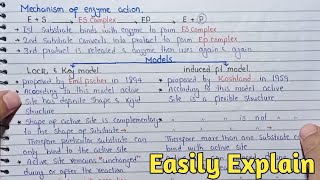 Mechanism of enzyme action.
E + S → ES complex → EP → E + P
→ 1st Substrate binds with enzyme to form ES complex
→ 2nd Substrate converts into product to form Ep complex
→ 3rd product is released & enzyme then uses again & again
Models
Lock & key model
→ proposed by Emil fischer in 1894
→ According to this model active site has definite shape & rigid structure
→ Shape of active site is complementary to the shape of Substrate
→ Therefore particular substrate can only bind to the active site
→ Active site remains "unchanged" during or after the reaction
induced fit model
→ proposed by Koshland in 1959
→ According to this model active site is a flexible structure
→ " " " is not "
Therefore more than one substrate can bind with active site
Easily Explain